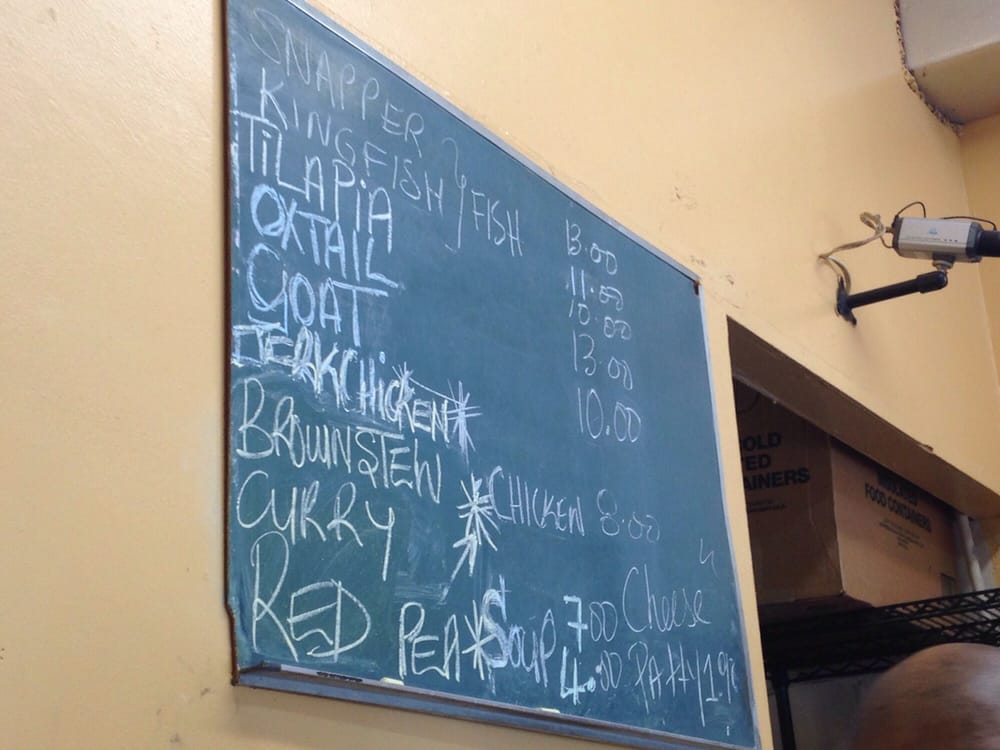 SNAPPER 13.00
KINGFISH } FISH 11.00
TILAPIA 10.00
OXTAIL 13.00
GOAT 10.00
JERK CHICKEN *
BROWNSTEW * CHICKEN 8.00
CURRY
RED PEA * SOUP 7.00
4.00
Cheese
Patty 1.90
OLD
TED
AINERS
INSULATED
FOOD CONTAINERS